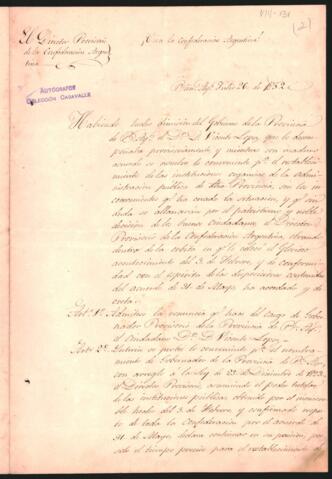 VIII-131
(2)
El Director Provisorio
de la Confederacion Argen-
tina
¡Viva la Confederacion Argentina!
AUTÓGRAFOS
COLECCIÓN CASAVALLE
Julio 26 de 1852
Habiendo hecho dimision del Gobierno de la Provincia
de Bs. Ays. el Dr. D. Vicente Lopez, que lo desem-
peñaba provisoriamente y mientras con maduro
acuerdo se acuerda lo conveniente pa. el estableci-
miento de las instituciones organicas de la admi-
nistracion publica de dha Provincia, con los in-
convenientes qe. ha creado la situacion, y qe. sin
duda se allanarán por el patriotismo y noble
decision de los buenos ciudadanos el Director
Provisorio de la Confederacion Argentina, obrando
dentro de la orbita en qe. le colocó el glorioso
acontecimiento del 3 de Febrero, y de conformi-
dad con el espiritu de las disposiciones contenidas
del acuerdo de 31 de Mayo ha acordado y de-
creta:
Art. 1o. Admitese la renuncia qe. hace del cargo de Gober-
nador Provisorio de la Provincia de Bs. Ays.
el ciudadano Dr. D. Vicente Lopez.
Art. 2o. Interin se provee lo conveniente pa. el nombra-
miento de Gobernador de la Provincia de Bs. Ays.
con arreglo á la ley de 23 de Diciembre de 1823
el Director Provisorio, asumiendo el poder
de las instituciones publicas obtenido por el memora-
ble hecho del 3 de Febrero, y confirmado respec-
to de toda la Confederacion por el acuerdo de
31 de Mayo, declara continuar en su posesion, por
solo el tiempo preciso para el establecimiento de